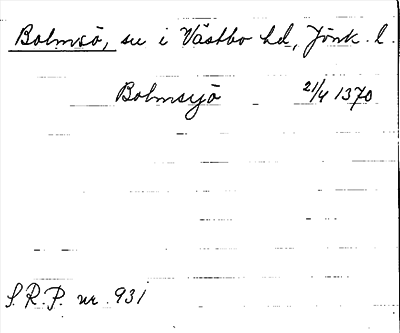 Bolmsö, sn i Västbo hd, Jönk. l.
Bolmsyö 21/4 1370
S.R.P. nr. 931